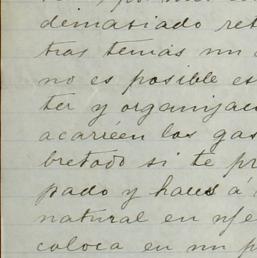 demasiado ret
tras temas un
no es posible es
ter y organizac
acarréen los gas
bretodo si te pr
pado y haces á
natural en
coloca en un p